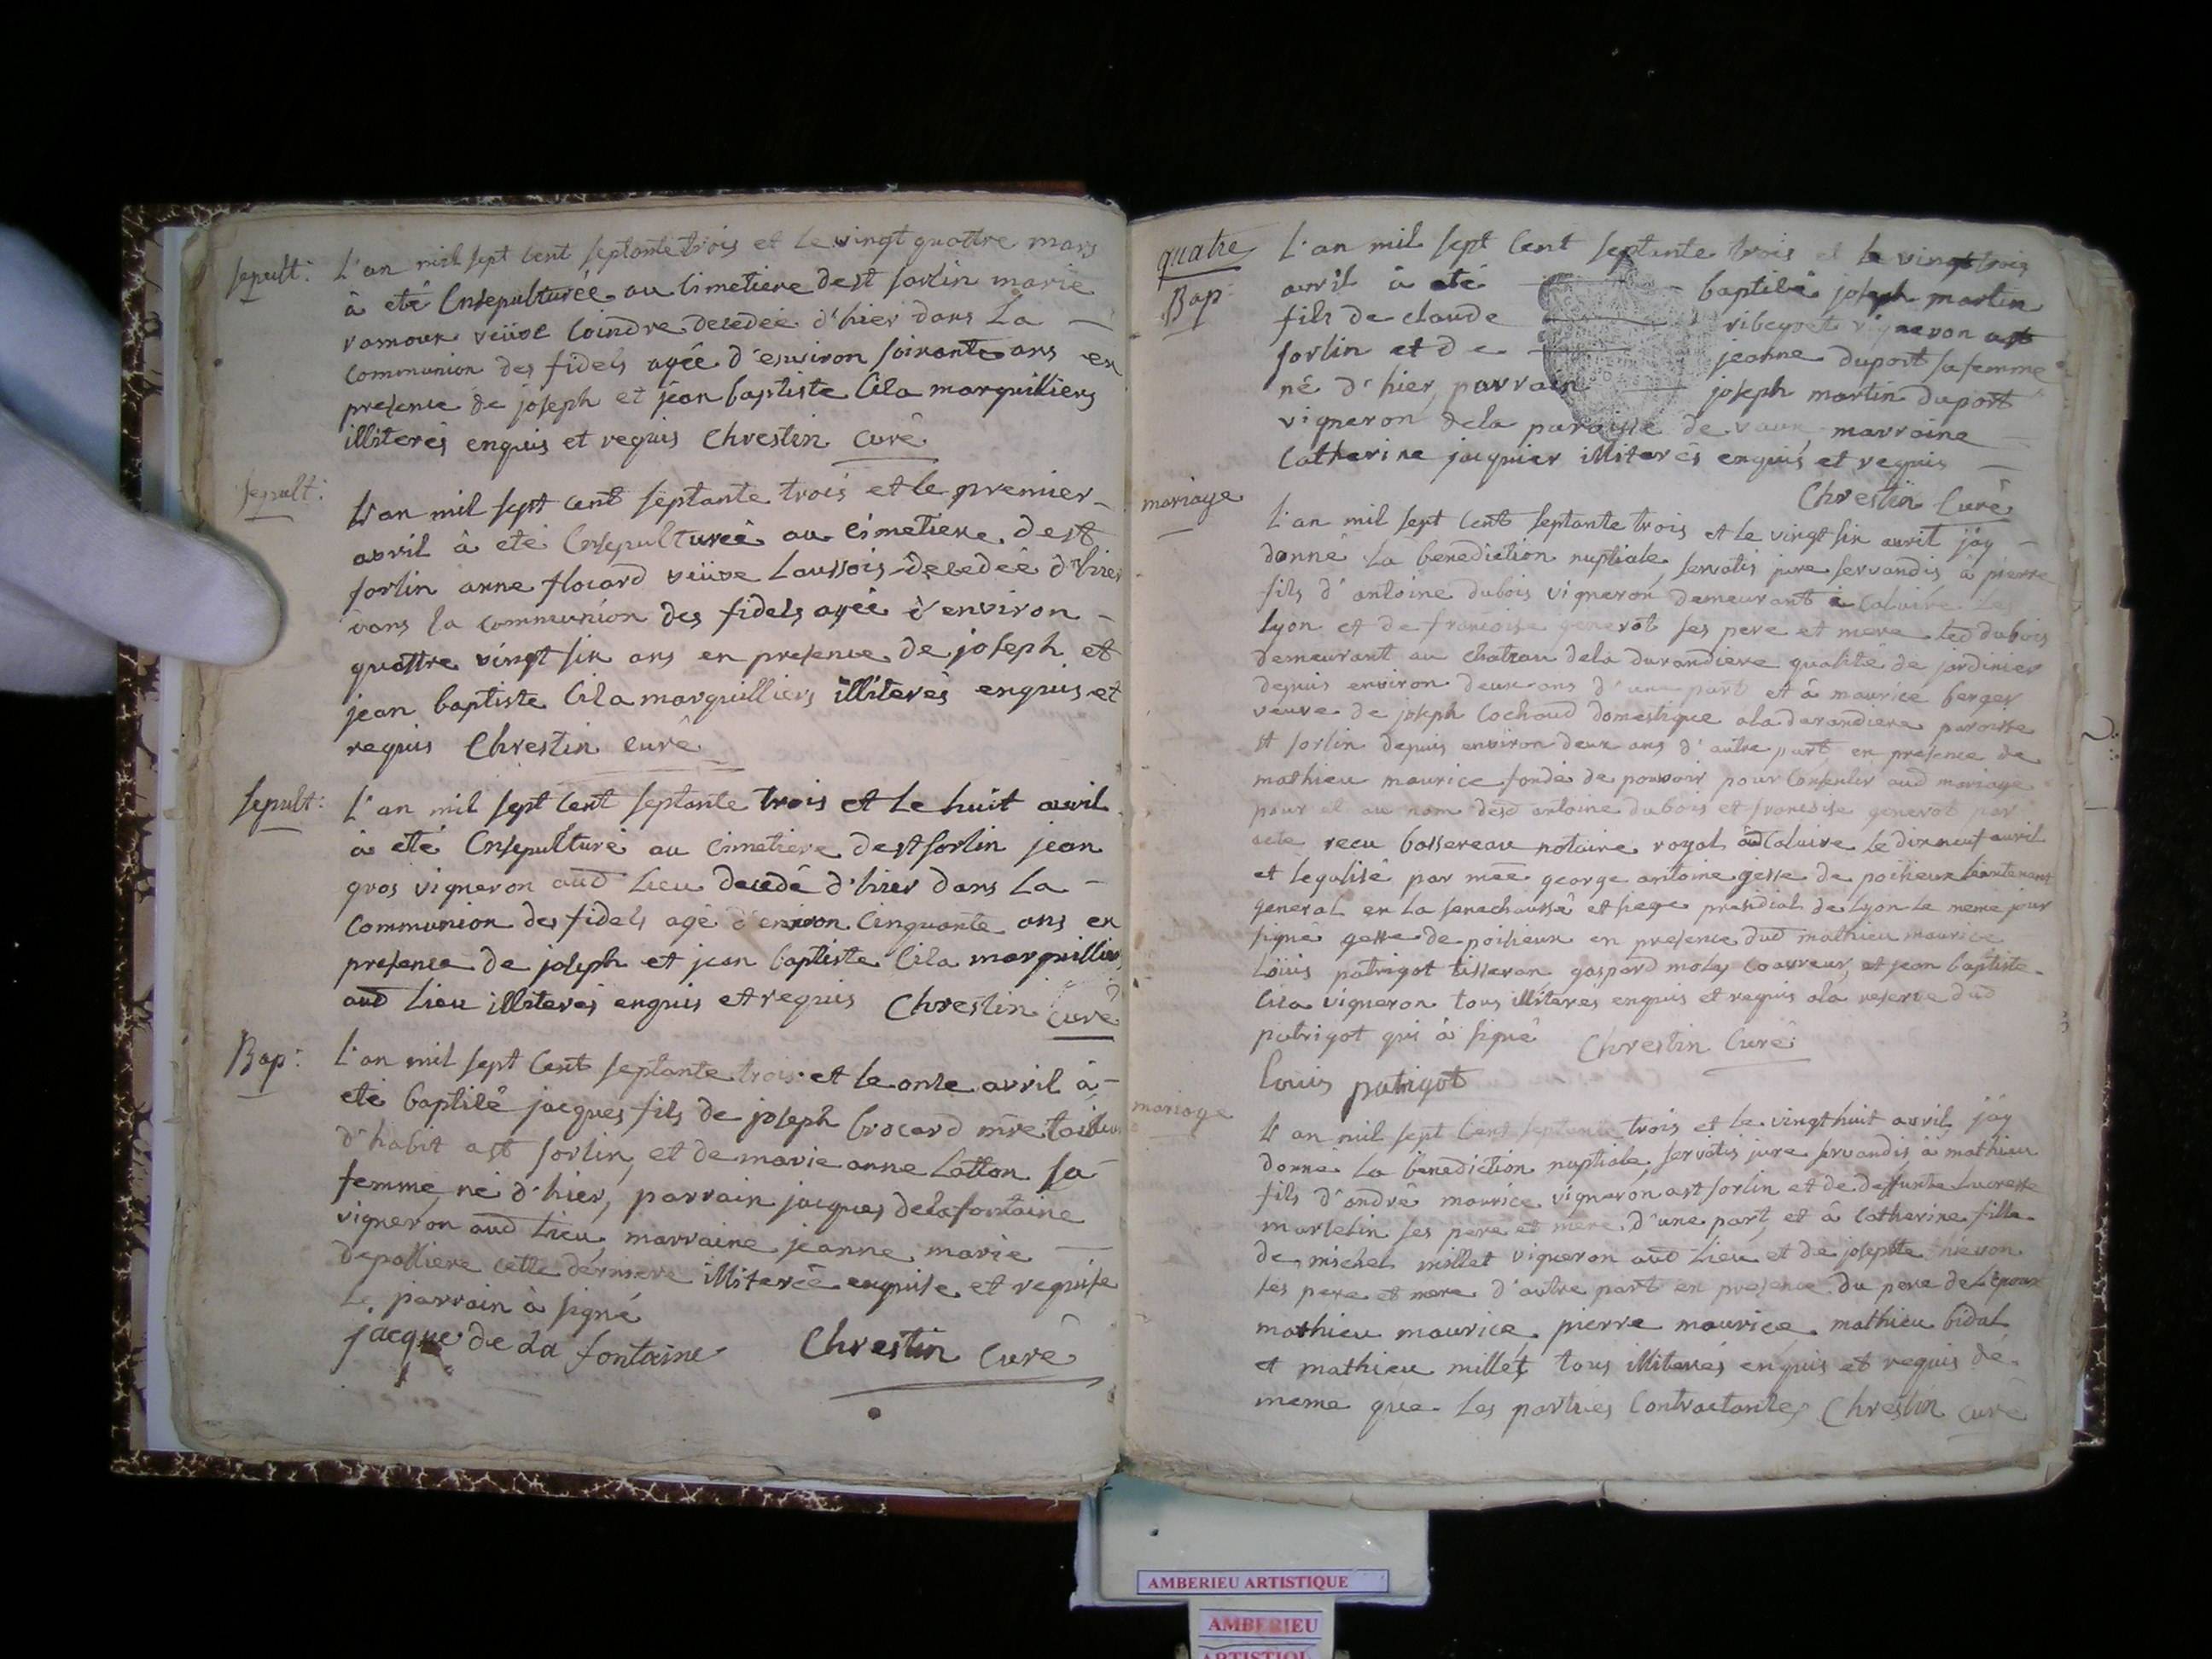 sepult: L'an mil sept cent septante trois et le vingt quattre mars
à eté Ensepulturée au cimetiere de st sorlin marie
ramoux veüve Coindre decedée d'hier dans La —
communion des fidels agée d'environ soixante ans en
presence de joseph et jean baptiste Cila marguilliers
illiterés enquis et requis Chrestin Curé
sepult: L'an mil sept cent septante trois et le premier —
avril à eté Ensepulturée au cimetiere de st
sorlin anne flocard veüve Laussois decedée d'hier
dans la communion des fidels agée d'environ —
quattre vingt six ans en presence de joseph et
jean baptiste Cila marguilliers illiterés enquis et
requis Chrestin curé
sepult: L'an mil sept cent septante trois et le huit avril
à eté Ensepulturé au cimetiere de st sorlin jean
gros vigneron aud Lieu decedé d'hier dans La —
communion des fidels agé d'environ Cinquante ans en
presence de joseph et jean baptiste Cila marguilliers
aud Lieu illiterés enquis et requis Chrestin Curé
Bap: L'an mil sept Cent septante trois et le onze avril à —
eté baptisé jacques fils de joseph brocard mre tailleur
d'habit a st sorlin, et de marie anne Latton sa
femme, né d'hier, parrain jacques delafontaine
vigneron aud Lieu, marraine jeanne marie —
depalliere cette derniere illiterée enquise et requise
Le parrain à signé
jacque de La fontaine Chrestin Curé
quatre
Bap: L'an mil sept Cent septante trois et le vingt trois
avril à eté — baptisé joseph martin
fils de claude — ribeyret vigneron a st
sorlin et de — jeanne duport sa femme
né d'hier, parrain — joseph martin duport
vigneron de la paroisse de vaux, marraine —
Catherine jacquier illiterés enquis et requis —
Chrestin Curé
mariage L'an mil sept Cent septante trois et le vingt six avril j'ay —
donné la benediction nuptiale, servatis jure servandis à pierre
fils d'antoine dubois vigneron demeurant à Caluire Les
Lyon et de francoise generot ses pere et mere led dubois
demeurant au chateau de la durandiere qualité de jardinier
depuis environ deux ans d'une part et à maurice berger
veuve de joseph Cochaud domestique a la durandiere paroisse
st sorlin depuis environ deux ans d'autre part, en presence de
mathieu maurice fondé de pouvoir pour Consentir aud mariage
pour et au nom desd antoine dubois et francoise generot par
acte recu bassereau notaire royal aud Caluire le dix neuf avril
et legalisé par mee george antoine gesse de poisieux Lieutenant
general en la senechaussé et siege presidial de Lyon le meme jour
signé gesse de poisieux en presence dud mathieu maurice
Loüis patrigot tisseran gaspard moly couvreur, et jean baptiste —
Cila vigneron tous illiterés enquis et requis a la reserve dud
patrigot qui à signé Chrestin Curé
Louis patrigot
mariage L'an mil sept Cent septante trois et le vingt huit avril j'ay
donné La benediction nuptiale, servatis jure servandis, à mathieu
fils d'andré maurice vigneron a st sorlin et de deffunte Lucresse
martelin ses pere et mere d'une part, et à Catherine fille
de michel millet vigneron aud Lieu et de josephte
ses pere et mere d'autre part en presence du pere de L'epoux
mathieu maurice, pierre maurice, mathieu bidal
et mathieu millet tous illiterés enquis et requis de
meme que Les parties Contractantes Chrestin curé
AMBERIEU ARTISTIQUE
AMBERIEU
ARTISTIQUE